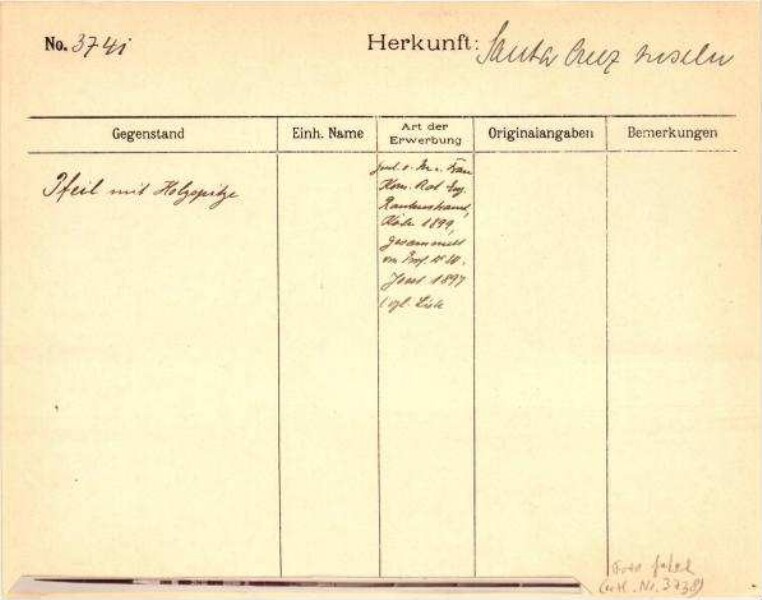 No. 3741
Herkunft: Santa Cruz Inseln
Gegenstand
Einh. Name
Art der Erwerbung
Originalangaben
Bemerkungen
Pfeil mit Holzspitze
Frau
Kom. Rat Eug.
Rautenstrauch,
Köln 1899,
gesammelt
von Prof. Dr. W.
Joest 1897
(vgl. Liste
Foto fehlt
(entl. Nr. 3738)